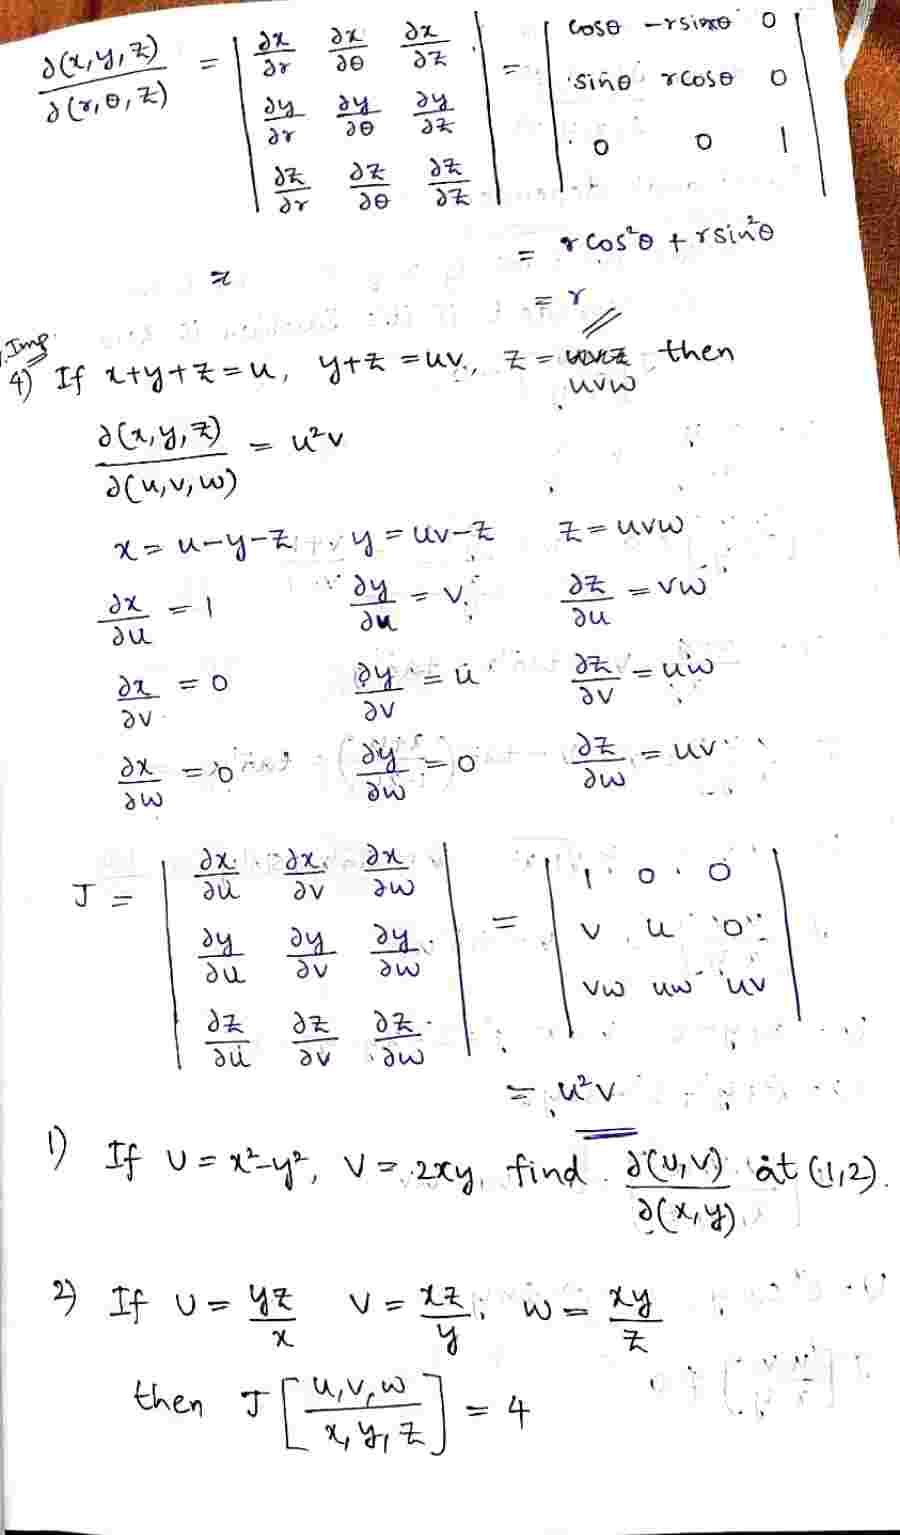 ∂(x,y,z)/∂(r,θ,z) = | ∂x/∂r ∂x/∂θ ∂x/∂z | = | cosθ -rsinθ 0 |
| ∂y/∂r ∂y/∂θ ∂y/∂z | | sinθ rcosθ 0 |
| ∂z/∂r ∂z/∂θ ∂z/∂z | | 0 0 1 |
= rcos²θ + rsin²θ
= r
Imp.
4) If x+y+z=u, y+z=uv, z= uvw then
∂(x,y,z)/∂(u,v,w) = u²v
x=u-y-z y=uv-z z=uvw
∂x/∂u = 1 ∂y/∂u = v ∂z/∂u = vw
∂x/∂v = 0 ∂y/∂v = u ∂z/∂v = uw
∂x/∂w = 0 ∂y/∂w = 0 ∂z/∂w = uv
J = | ∂x/∂u ∂x/∂v ∂x/∂w | = | 1 0 0 |
| ∂y/∂u ∂y/∂v ∂y/∂w | | v u 0 |
| ∂z/∂u ∂z/∂v ∂z/∂w | | vw uw uv |
= u²v
1) If u=x²-y², v=2xy, find ∂(u,v)/∂(x,y) at (1,2).
2) If u= yz/x v= xz/y, w= xy/z
then J[u,v,w/x,y,z] = 4